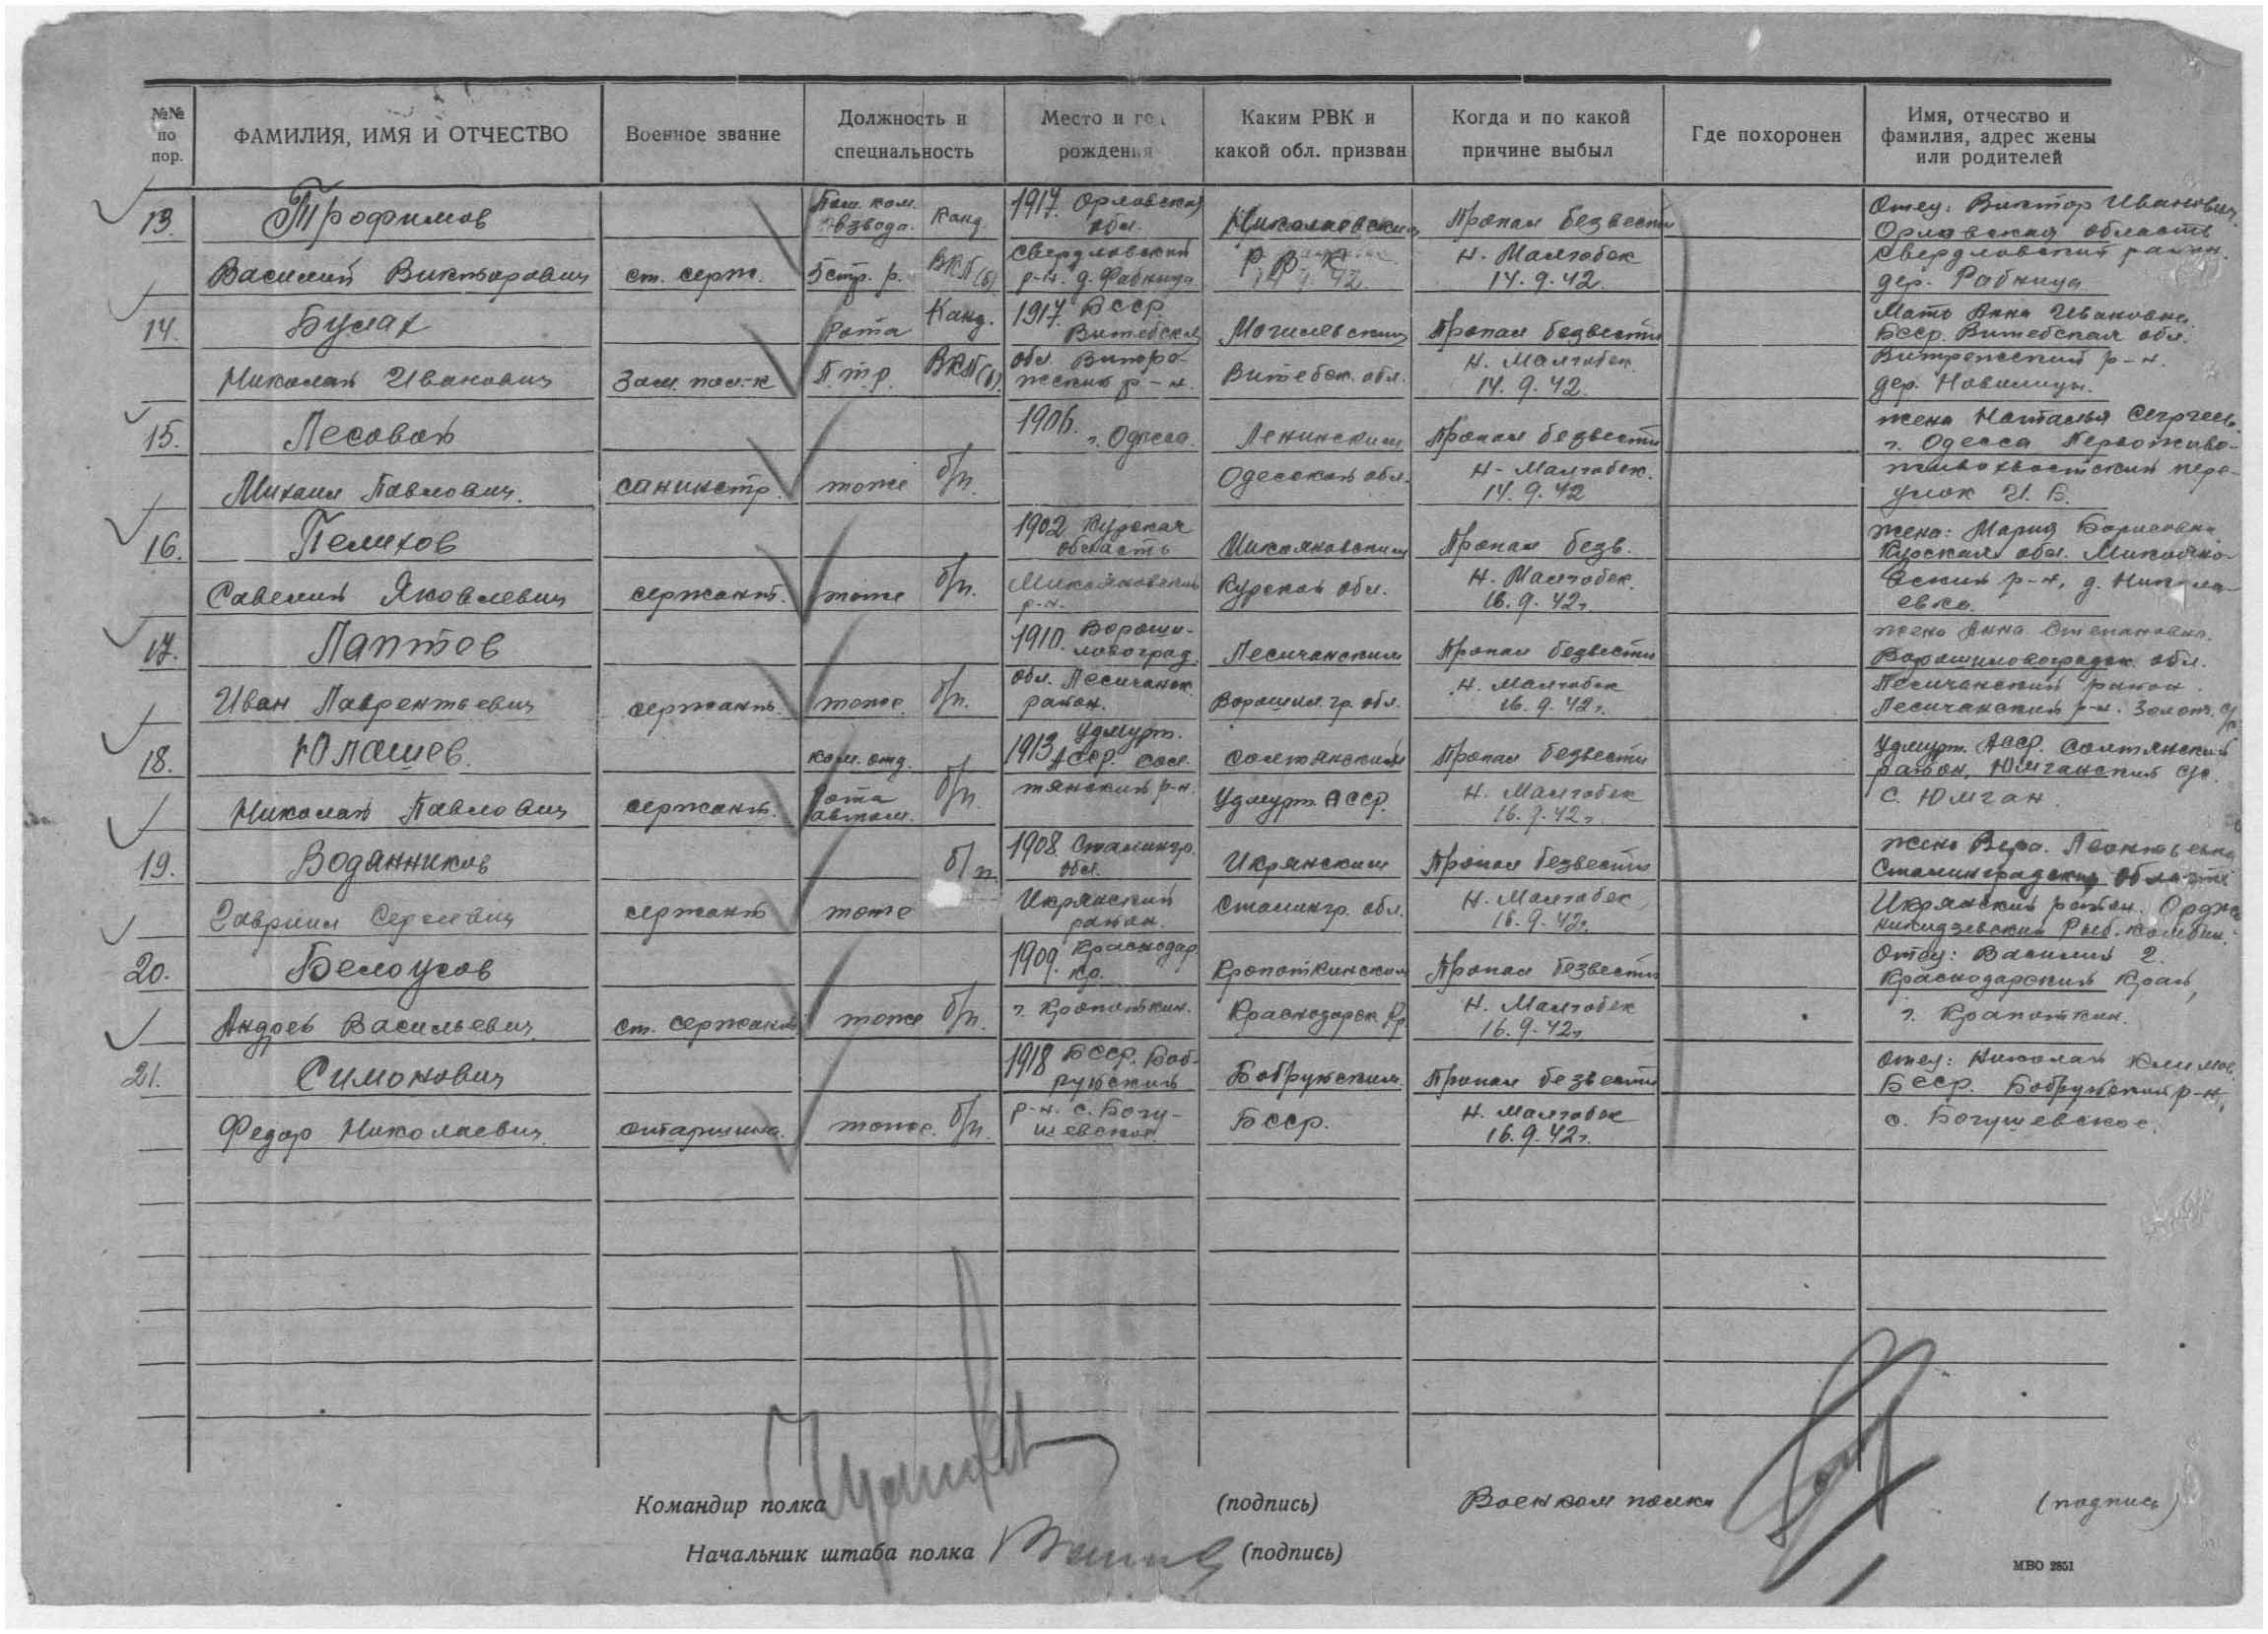 №№ по пор.
ФАМИЛИЯ, ИМЯ И ОТЧЕСТВО
Военное звание
Должность и специальность
Место и год рождения
Каким РВК и какой обл. призван
Когда и по какой причине выбыл
Где похоронен
Имя, отчество и фамилия, адрес жены или родителей
13.
Трофимов
Василий Викторович
ст. серж.
Пом. ком. взвода.
5 стр. р.
Канд.
ВКП(б)
1917. Орловская
обл.
Свердловский
р-н. д.
Николаевским
Р В К
Пропал безвести
Н. Малгобек
14.9.42.
Отец: Виктор Иванович
Орловская область
Свердловский район.
дер. Рабница
14.
Булах
Николай Иванович
Зам. пол-к
Рота
П.т.р.
Канд.
ВКП(б).
1917. БССР.
Витебская
обл.
р-н.
Могилевским
Витебск. обл.
Пропал безвести
Н. Малгобек.
14.9.42.
Мать Анна Ивановна
БССР. Витебская обл.
р-н.
дер.
15.
Лесовой
Михаил Павлович.
санинстр.
тоже
б/п.
1906.
г. Одесса.
Ленинским
Одесской обл.
Пропал безвести
Н-Малгобек.
14.9.42
жена Наталья
г. Одесса
пере-
улок
16.
Пелихов
Савелий Яковлевич
сержант.
тоже
б/п.
1902 Курская
область
Микояновский
р-н.
Микояновским
Курской обл.
Пропал безв.
Н. Малгобек.
16.9.42г
жена: Мария Борисовна
Курская обл. Микояно-
вский р-н, д. Никола-
евка.
17.
Лаптев
Иван Лаврентьевич
сержант.
тоже.
б/п.
1910. Вороши-
ловоград.
обл. Лесичанск.
район.
Лесичанским
Ворошил.гр. обл.
Пропал безвести
Н. Малгобек
16.9.42г.
жена Анна Степановна.
Ворошиловоградск. обл.
Лесичанский район.
Лесичанский р-н.
18.
Юлашев.
Николай Павлович
сержант.
ком. отд.
Рота
автом.
б/п.
1913 Удмурт.
АССР. Сол-
тянский р-н.
Солтянским
Удмурт. АССР.
Пропал безвести
Н. Малгобек
16.9.42г
Удмурт. АССР. Солтянский
район, Юмганский с/с.
с. Юмган.
19.
Водянников
Гавриил Сергеевич
сержант
тоже
б/п.
1908. Сталингр.
обл.
Икрянский
район.
Икрянским
Сталингр. обл.
Пропал безвести
Н. Малгобек
16.9.42г.
жена Вера. Леонтьевна
Сталинградская область
Икрянский район. Орджо-
никидзевский Рыб. комбин.
20.
Белоусов
Андрей Васильевич
ст. сержант
тоже
б/п.
1909. Краснодар.
кр.
г. Кропоткин.
Кропоткинским
Краснодарск. кр
Пропал безвести
Н. Малгобек
16.9.42г
Отец: Василий Г.
Краснодарский край,
г. Крапоткин.
21.
Симонович
Федор Николаевич.
старшина.
тоже.
б/п.
1918 БССР. Боб-
руйский
р-н. с. Богу-
шевское.
Бобруйским.
БССР.
Пропал безвести
Н. Малгобек
16.9.42г.
отец: Николай Климов.
БССР. Бобруйский р-н,
с. Богушевское.
Командир полка
(подпись)
Военком полка
(подпись)
Начальник штаба полка
(подпись)
МВО 2851